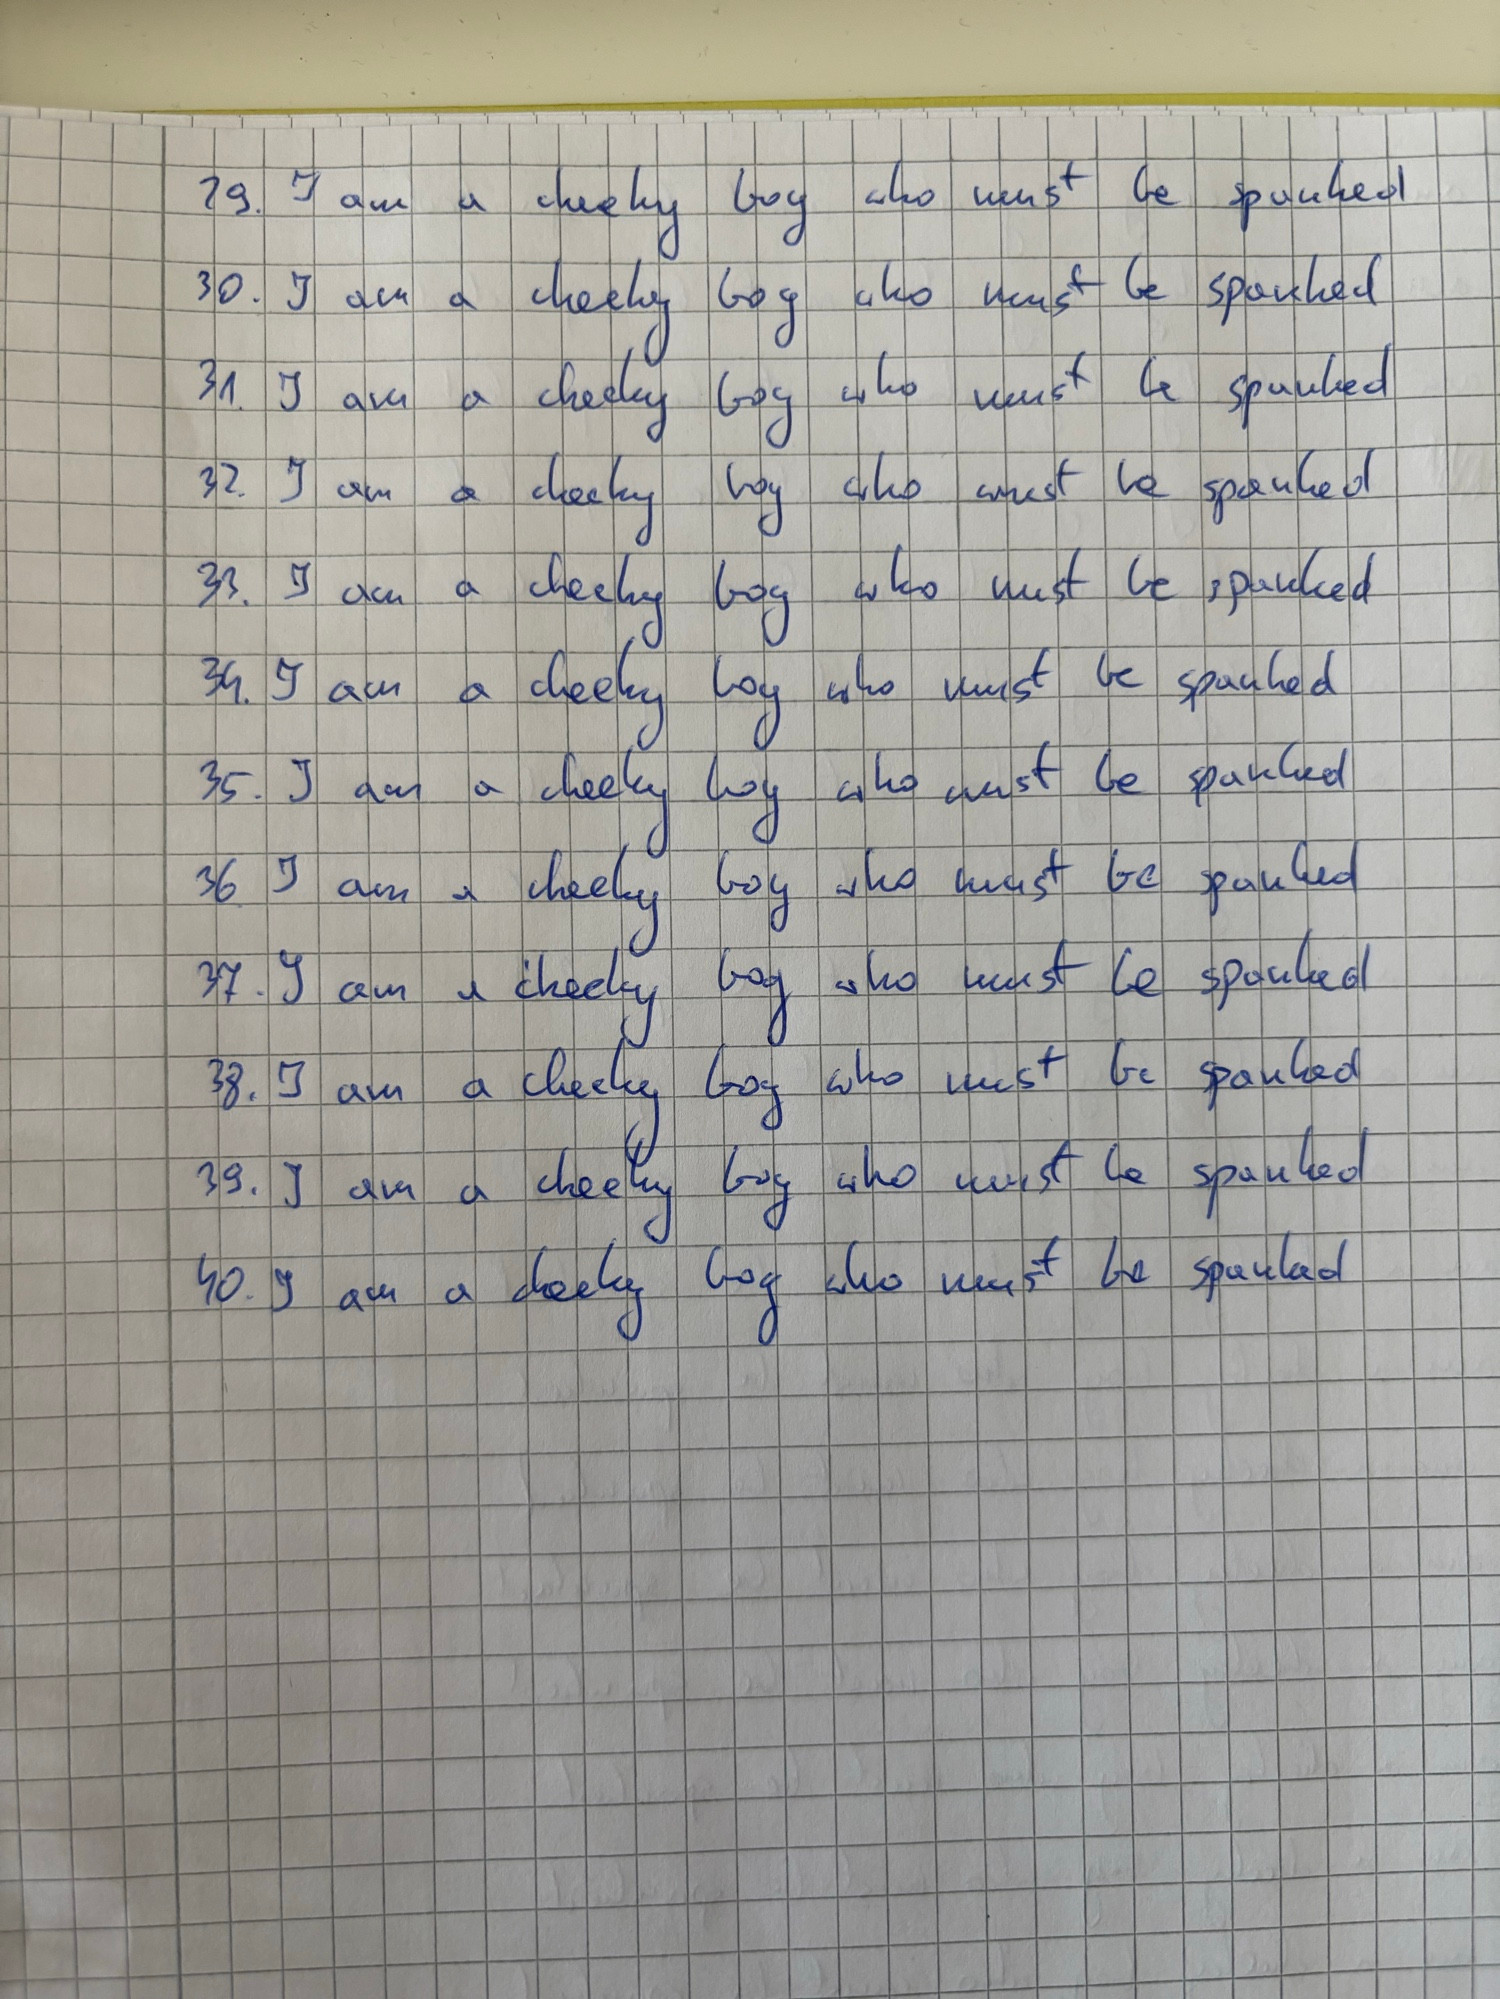 29. I am a cheeky boy who must be spanked
30. I am a cheeky boy who must be spanked
31. I am a cheeky boy who must be spanked
32. I am a cheeky boy who must be spanked
33. I am a cheeky boy who must be spanked
34. I am a cheeky boy who must be spanked
35. I am a cheeky boy who must be spanked
36 I am a cheeky boy who must be spanked
37. I am a cheeky boy who must be spanked
38. I am a cheeky boy who must be spanked
39. I am a cheeky boy who must be spanked
40. I am a cheeky boy who must be spanked